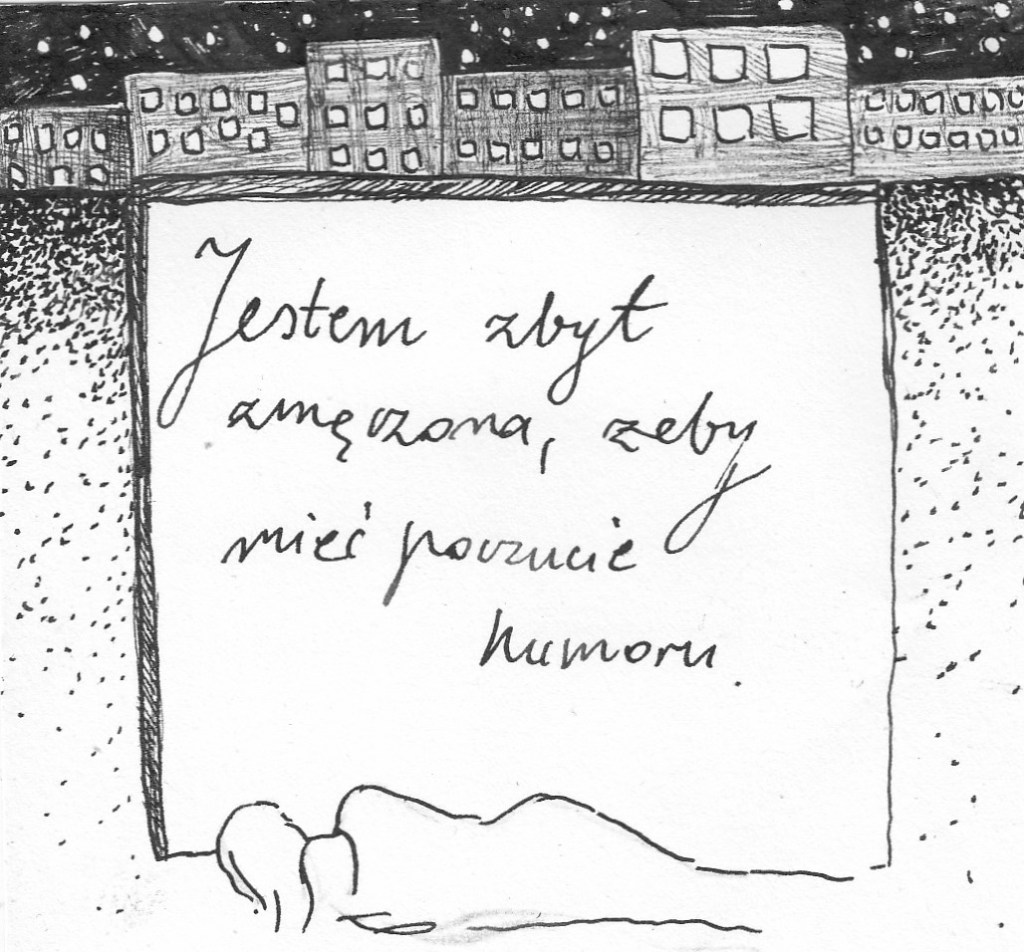 Jestem zbyt
zmęczona, żeby
mieć poczucie
humoru.